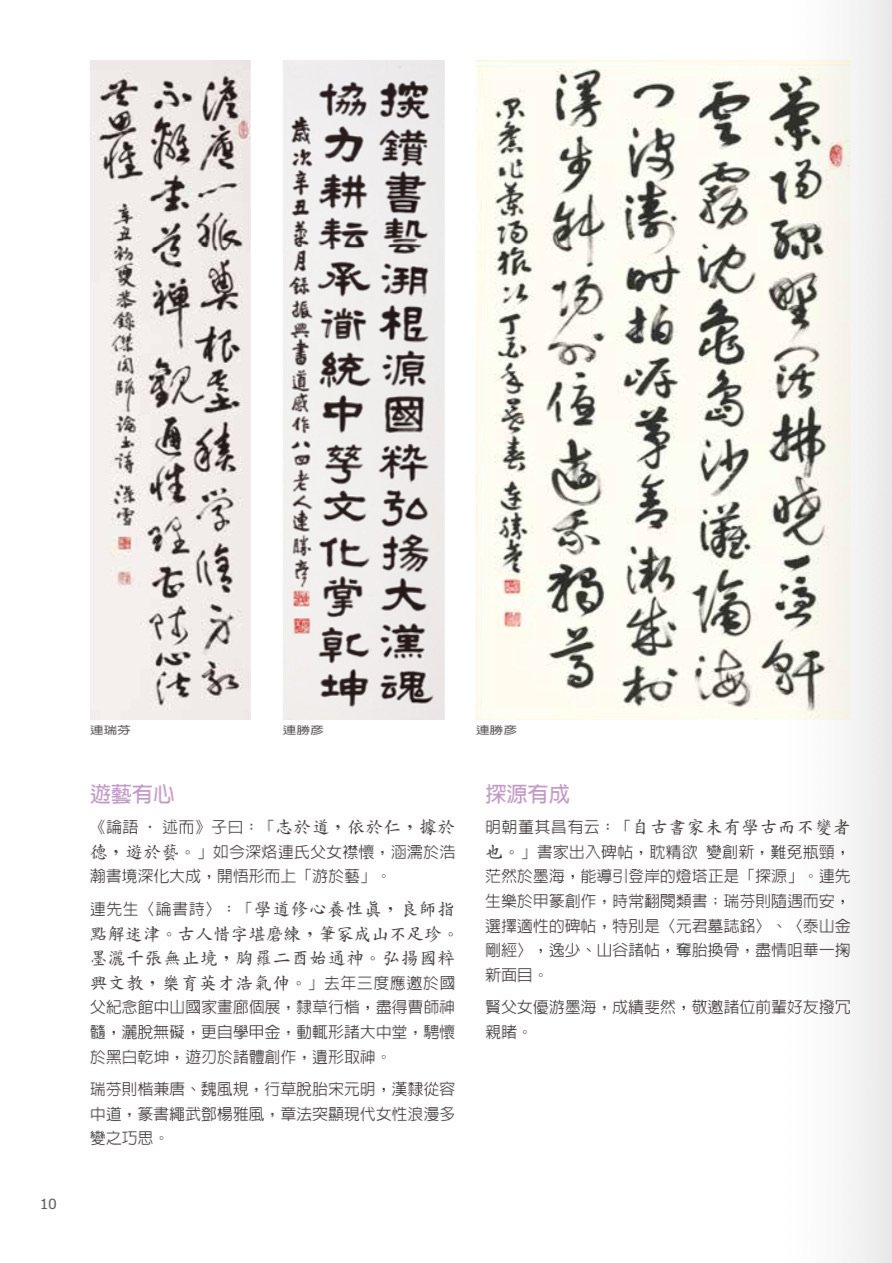 澹廬一脈奠根基積學脩身
不離書道禪觀通性理書陳心法
共思惟
辛丑初夏恭錄傑閣師論書詩
連瑞芬
探鑽書藝溯根源國粹弘揚大漢魂
協力耕耘承衜統中華文化掌乾坤
歲次辛丑月錄振興書道感作八四老人連勝彥
連勝彥
蘭陽綠野闊拂曉一憑軒
雲霧沈龜島沙灘隔海
門波濤時拍岸茅舍漸成村
漫步斜陽外優遊我獨尊
舊作蘭陽旅次丁酉年暮春連勝彥
連勝彥
遊藝有心
《論語 · 述而》子曰：「志於道，依於仁，據於
德，遊於藝。」如今深烙連氏父女襟懷，涵濡於浩
瀚書境深化大成，開悟形而上「游於藝」。
連先生〈論書詩〉：「學道修心養性真，良師指
點解迷津。古人惜字堪磨練，筆冢成山不足珍。
墨灑千張無止境，胸羅二酉始通神。弘揚國粹
興文教，樂育英才浩氣伸。」去年三度應邀於國
父紀念館中山國家畫廊個展，隸草行楷，盡得曹師神
髓，灑脫無礙，更自學甲金，動輒形諸大中堂，騁懷
於黑白乾坤，遊刃於諸體創作，遺形取神。
瑞芬則楷兼唐、魏風規，行草脫胎宋元明，漢隸從容
中道，篆書繩武鄧楊雅風，章法突顯現代女性浪漫多
變之巧思。
探源有成
明朝董其昌有云：「自古書家未有學古而不變者
也。」書家出入碑帖，耽精欲 變創新，難免瓶頸，
茫然於墨海，能導引登岸的燈塔正是「探源」。連先
生樂於甲篆創作，時常翻閱類書；瑞芬則隨遇而安，
選擇適性的碑帖，特別是〈元君墓誌銘〉、〈泰山金
剛經〉，逸少、山谷諸帖，奪胎換骨，盡情咀華一掬
新面目。
賢父女優游墨海，成績斐然，敬邀諸位前輩好友撥冗
親睹。
10